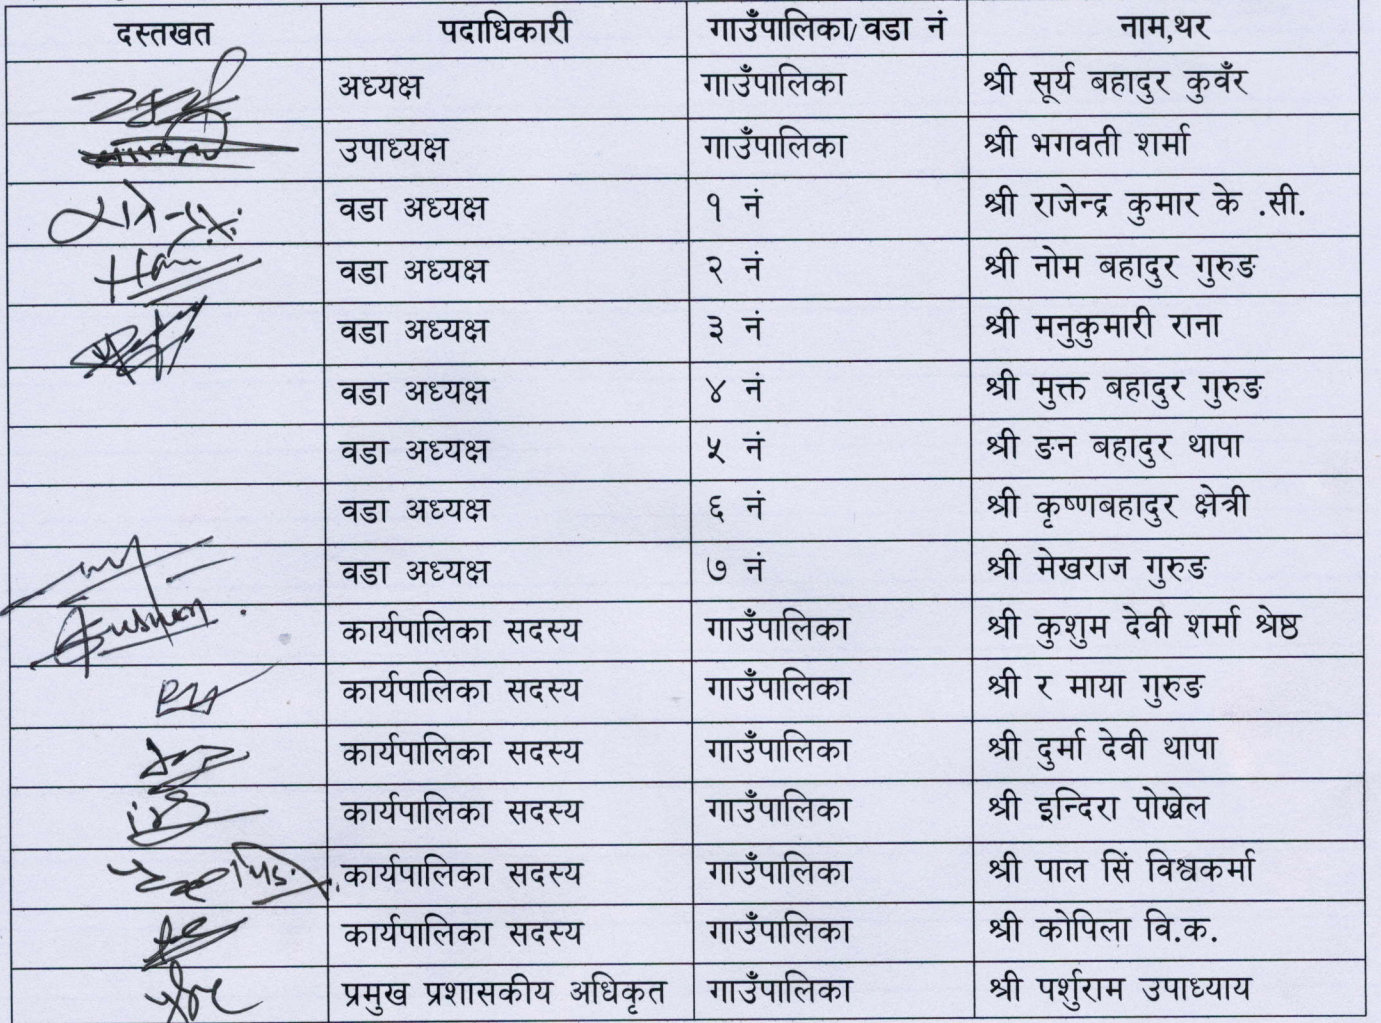 दस्तखत पदाधिकारी गाउँपालिका/वडा नं नाम,थर
अध्यक्ष गाउँपालिका श्री सूर्य बहादुर कुवँर
उपाध्यक्ष गाउँपालिका श्री भगवती शर्मा
वडा अध्यक्ष १ नं श्री राजेन्द्र कुमार के .सी.
वडा अध्यक्ष २ नं श्री नोम बहादुर गुरुङ
वडा अध्यक्ष ३ नं श्री मनुकुमारी राना
वडा अध्यक्ष ४ नं श्री मुक्त बहादुर गुरुङ
वडा अध्यक्ष ५ नं श्री ङन बहादुर थापा
वडा अध्यक्ष ६ नं श्री कृष्णबहादुर क्षेत्री
वडा अध्यक्ष ७ नं श्री मेखराज गुरुङ
कार्यपालिका सदस्य गाउँपालिका श्री कुशुम देवी शर्मा श्रेष्ठ
कार्यपालिका सदस्य गाउँपालिका श्री र माया गुरुङ
कार्यपालिका सदस्य गाउँपालिका श्री दुर्मा देवी थापा
कार्यपालिका सदस्य गाउँपालिका श्री इन्दिरा पोख्रेल
कार्यपालिका सदस्य गाउँपालिका श्री पाल सिं विश्वकर्मा
कार्यपालिका सदस्य गाउँपालिका श्री कोपिला वि.क.
प्रमुख प्रशासकीय अधिकृत गाउँपालिका श्री पर्शुराम उपाध्याय